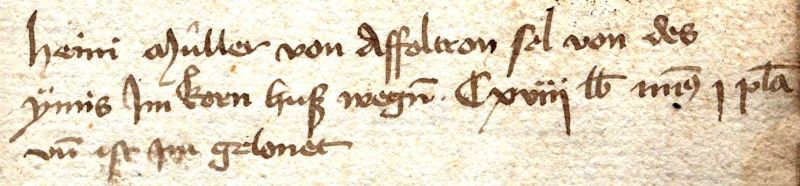 Heini Müller von Affoltron sol von des
ymis Im korn huß wegn̄. Cxviii lb min9 j plā
vn̄ ist im gelonet